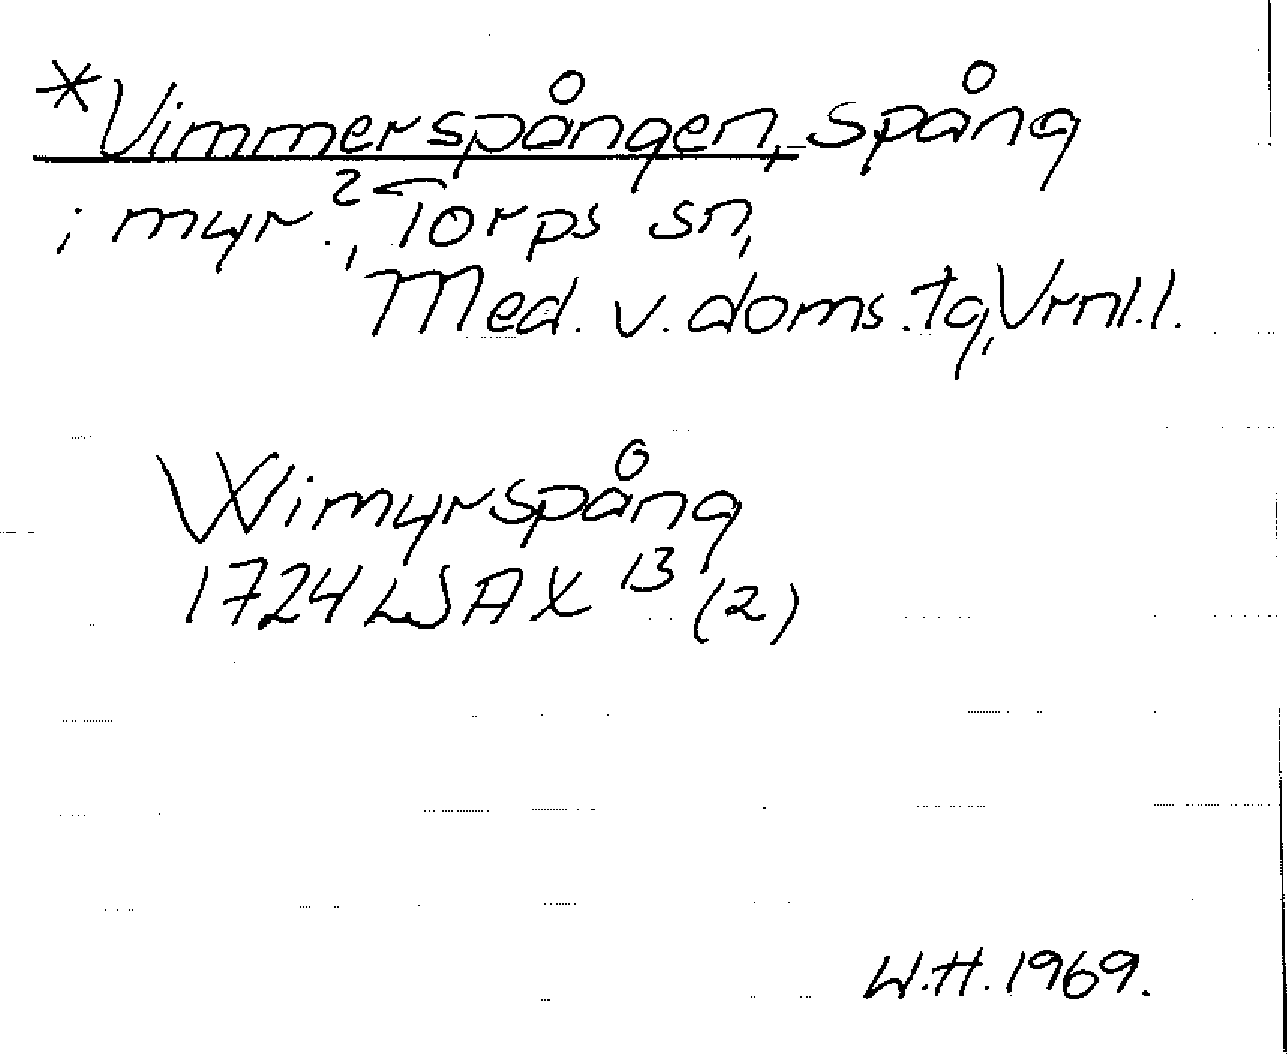 *Vimmerspången, spång
i myr?, Torps sn,
Med. v. doms. tg, Vrml.l.
Wimyrspång
1724 LSA X 13 (2)
W.H. 1969.